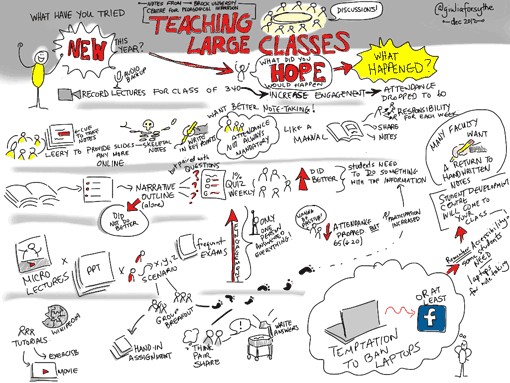 WHAT HAVE YOU TRIED
NEW
THIS YEAR?
AUDIO BACKUP
NOTES FROM → BROCK UNIVERSITY
CENTRE FOR PEDAGOGICAL INNOVATION
TEACHING
LARGE CLASSES
DISCUSSIONS!
@giuliaforsythe
dec 2012
WHAT DID YOU
HOPE
WOULD HAPPEN
WHAT
HAPPENED?
RECORD LECTURES FOR CLASS OF 340
INCREASE ENGAGEMENT
ATTENDANCE
DROPPED TO 40
WANT BETTER NOTE-TAKING!
CUE
TO TAKE
NOTES
LEERY TO PROVIDE SLIDES
ANY MORE
ONLINE
SKELETAL
NOTES
WRITE
IN KEY POINTS
ATTENDANCE
NOT ALWAYS
MANDATORY
LIKE A
MANUAL
RESPONSIBILITY
FOR EACH WEEK
SHARE
NOTES
MANY FACULTY
WANT
A RETURN TO
HANDWRITTEN
NOTES
NARRATIVE
OUTLINE
(alone)
DID
NOT DO
BETTER
QUESTIONS
1%
QUIZ
WEEKLY
DID
BETTER
students NEED
TO DO SOMETHING
WITH THE INFORMATION
STUDENT DEVELOPMENT
CENTRE
WILL COME TO
YOUR
CLASS
MICRO
LECTURES
X
PPT
X
x, y, z
SCENARIO
frequent
EXAMS
ONLY
ONE
PERSON
ANSWERED
EVERYTHING
ATTENDANCE
DROPPED BUT
PARTICIPATION
INCREASED
Remember Accessibility
some students
NEED
laptops
for note taking
GROUP
BREAKOUT
WIKIPEDIA
TUTORIALS
EXERCISE
MOVIE
HAND-IN
ASSIGNMENT
THINK
PAIR
SHARE
WRITE
ANSWERS
TEMPTATION
TO BAN
LAPTOPS
OR AT
LEAST
f